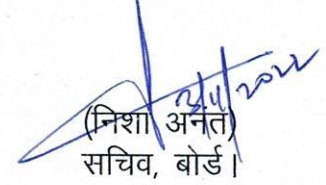 3/11/2022
(निशा अनंत)
सचिव, बोर्ड।